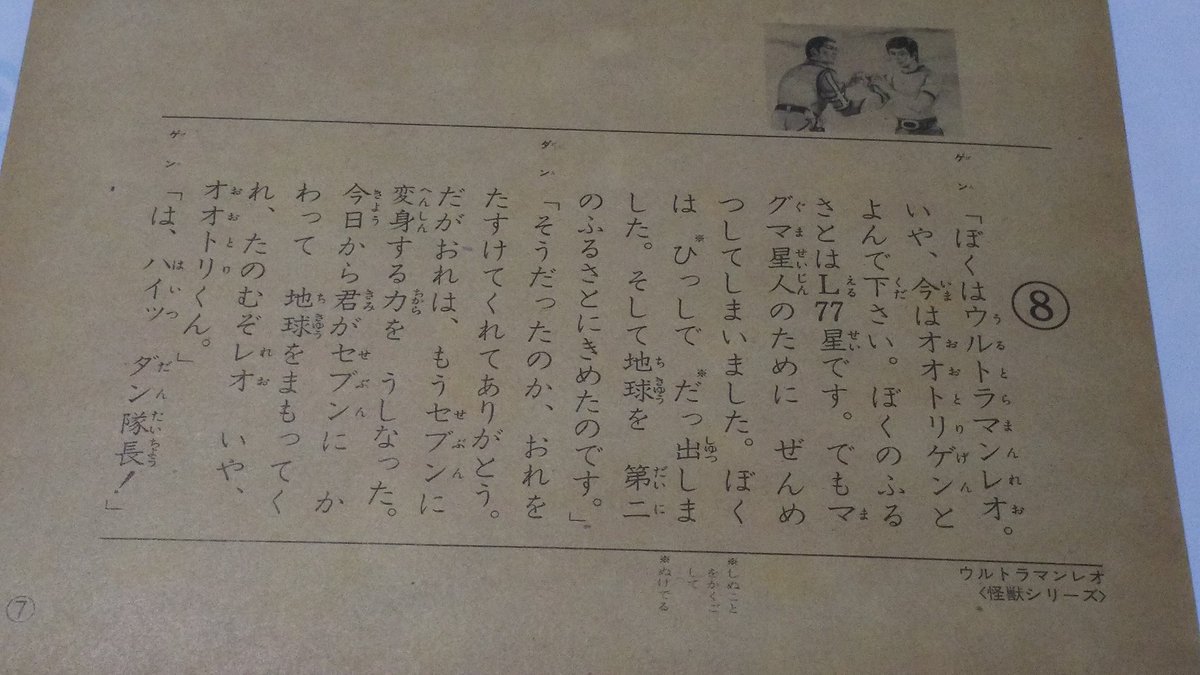 ⑧
ゲン「ぼくはウルトラマンレオ。
いや、今はオオトリゲンと
よんで下さい。ぼくのふる
さとはL77星です。でもマ
グマ星人のために ぜんめ
つしてしまいました。ぼく
は※ひっしで※だっ出しま
した。そして地球を 第二
のふるさとにきめたのです。」
ダン「そうだったのか、おれを
たすけてくれてありがとう。
だがおれは、もうセブンに
変身する力を うしなった。
今日から君がセブンに か
わって 地球をまもってく
れ、たのむぞレオ いや、
オオトリくん。」
ゲン「は、ハイッ ダン隊長!」
※しぬこと
をかくご
して
※ぬけでる
ウルトラマンレオ
〈怪獣シリーズ〉
⑦